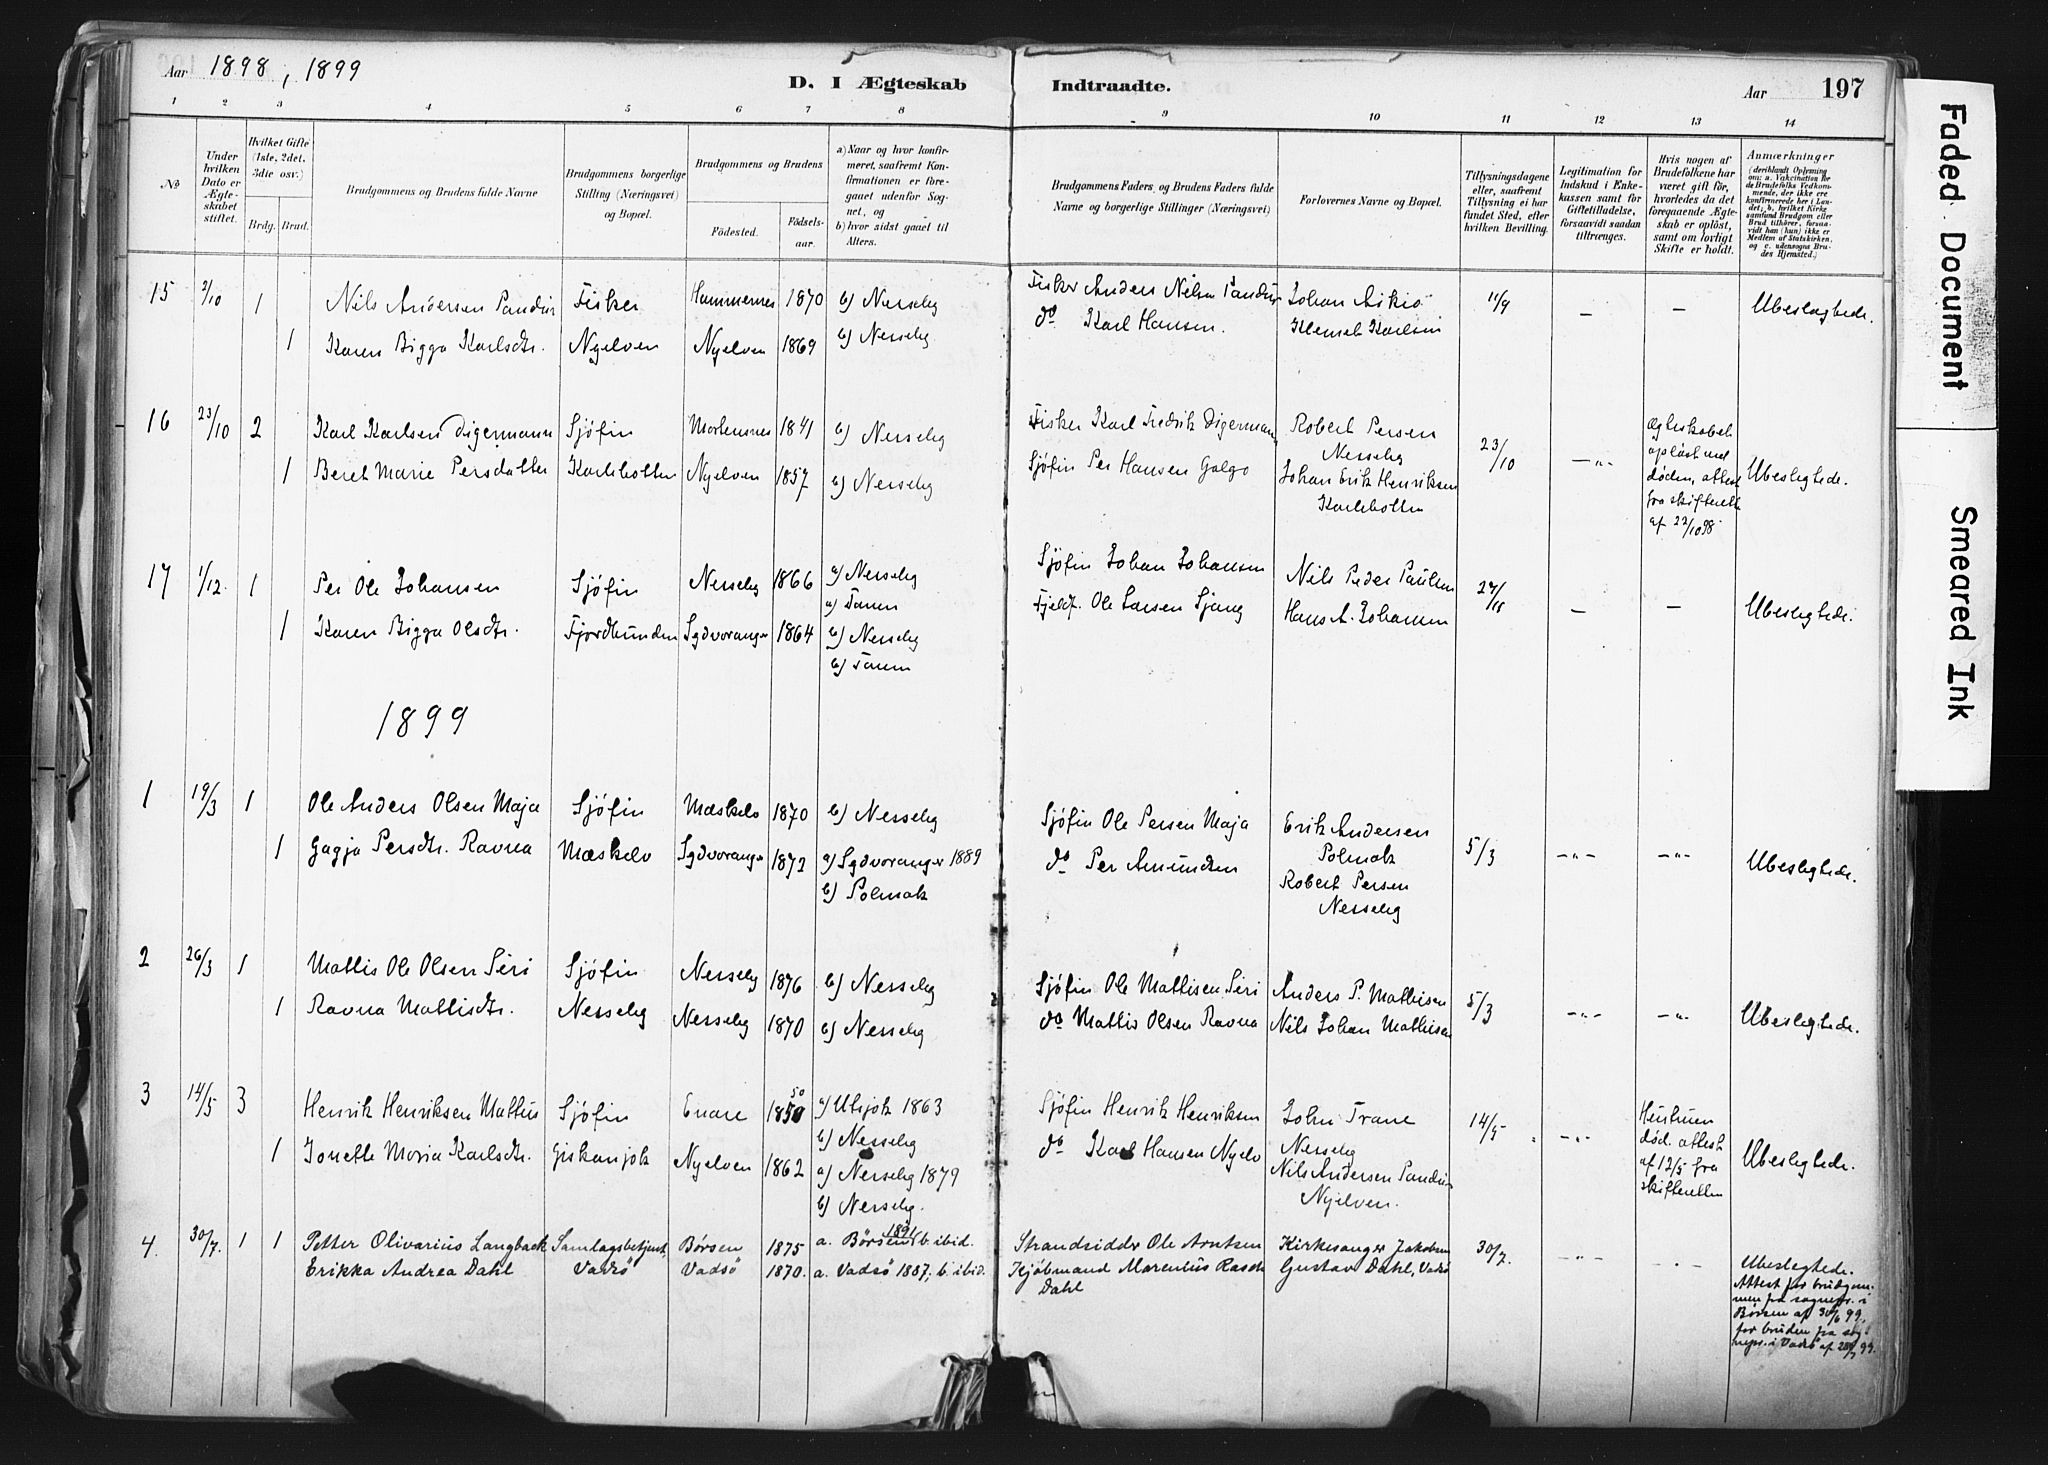 Aar 1898, 1899
D. I Ægteskab Indtraadte.
Aar 197
1 2 3 4 5 6 7 8 9 10 11 12 13 14
No
Under hvilken Dato er Ægteskabet stiftet.
Hvilket Gifte (1ste, 2det, 3die osv.)
Brdg. Brud.
Brudgommens og Brudens fulde Navne
Brudgommens borgerlige Stilling (Næringsvei) og Bopæl.
Brudgommens og Brudens
Fødested. Fødselsaar.
a) Naar og hvor konfirmeret, saafremt Konfirmationen er foregaaet udenfor Sognet, og
b) hvor sidst gaaet til Alters.
Brudgommens Faders og Brudens Faders fulde Navne og borgerlige Stillinger (Næringsvei)
Forlovernes Navne og Bopæl.
Tillysningsdagene eller, saafremt Tillysning ei har fundet Sted, efter hvilken Bevilling.
Legitimation for Indskud i Enkekassen samt for Giftetilladelse, forsaavidt saadan tiltrænges.
Hvis nogen af Brudefolkene har været gift før, hvorledes da det foregaaende Ægteskab er opløst, samt om lovligt Skifte er holdt.
Anmærkninger (deriblandt Oplysning om: a. Vakcination for de Brudefolks Vedkommende, der ikke ere konfirmerede her i Landet; b. hvilket Kirkesamfund Brudgom eller Brud tilhører, forsaavidt han (hun) ikke er Medlem af Statskirken, og c. udensogns Brudes Hjemsted.)
15 2/10 1 Nils Andersen Pandur Fisker Hammernes 1870 b) Nesseby Fisker Anders Nilsen Pandur Johan Aikio 11/9 — — Ubeslægtede.
1 Karen Bigga Karlsdtr. Nyelven Nyelven 1869 b) Nesseby do Karl Hansen. Klemet Karlsen
16 23/10 2 Karl Karlsen Digermann Sjöfin Mortensnes 1841 b) Nesseby Fisker Karl Fredrik Digermann Robert Persen Nesseby 23/10 —"— Ægteskabet opløst med døden, attest fra skifteretten af 22/10 98 Ubeslegtede.
1 Beret Marie Persdatter Karlebotten Nyelven 1857 b) Nesseby Sjöfin Per Hansen Galgo Johan Erik Henriksen Karlebotten
17 1/12. 1 Per Ole Johansen Sjöfin Nesseby 1866 a) Nesseby a) Tanen Sjöfin Johan Johansen Nils Peder Paulsen 27/11 — — Ubeslegtede.
1 Karen Bigga Olsdtr. Fjordbunden Sydvaranger 1864 b) Nesseby b) Tanen Fjeldf. Ole Larsen Sjang Hans A. Johansen
1899
1 19/3 1 Ole Anders Olsen Maja Sjöfin Mæskelv 1870 b) Nesseby Sjöfin Ole Persen Maja Erik Andersen Polmak 5/3 —"— —"— Ubeslegtede.
1 Gagja Persdtr. Ravna Mæskelv Sydvaranger 1872 a) Sydvaranger 1889 b) Polmak do Per Amundsen Robert Persen Nesseby
2 26/3 1 Mattis Ole Olsen Siri Sjöfin Nesseby 1876 b) Nesseby Sjöfin Ole Mathisen Siri Anders P. Mathisen 5/3 —"— —"— Ubeslegtede.
1 Ravna Mattisdtr. Nesseby Nesseby 1870 b) Nesseby do Mattis Olsen Ravna Nils Johan Mathisen
3 14/5 3 Henrik Henriksen Mattus Sjöfin Enare 1850 50 a) Utsjok 1863 b) Nesseby Sjöfin Henrik Henriksen John Trane Nesseby 14/5 —"— Hustruen død. attest af 12/5 fra skifteretten Ubeslegtede.
1 Jonette Maria Karlsdtr. Giskanjok Nyelven 1862 a) Nesseby 1879 b) Nesseby. do Karl Hansen Nyelv Nils Andersen Pandur Nyelven.
4. 30/7. 1 1 Petter Olivarius Langback Samlagsbetjent, Børsen 1875 a. Børsen 1891 b. ibid. Strandsidder Ole Arntsen Kirkesanger Jakobsen 30/7. —"— —"— Ubeslegtede.
Erikka Andrea Dahl Vadsö Vadsö 1870. a. Vadsö 1887; b. ibid. Kjöbmand Marenius Rasch Dahl Gustav Dahl, Vadsö
Attest for brudgommen fra sognepr. i Börsen af 30/6 99, for bruden fra sognepr. i Vadsö af 28/7 99.
Faded Document
Smeared Ink